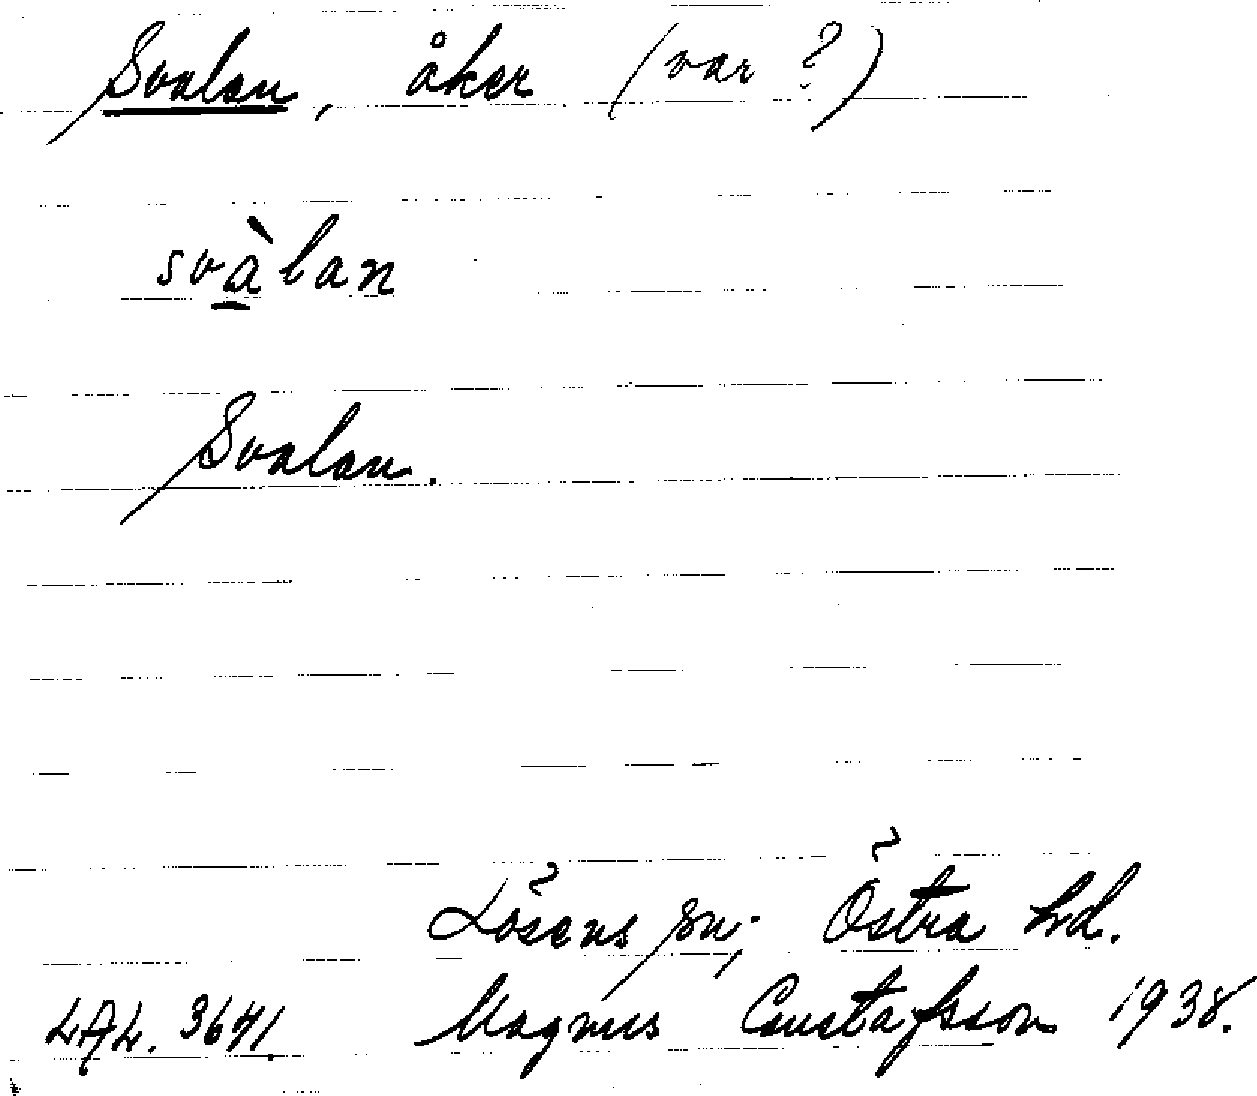 Svalan, åker (var ?)
svàlan
Svalan.
Lösens sn; Östra hd.
LAL. 3641. Magnus Gustafsson 1938.